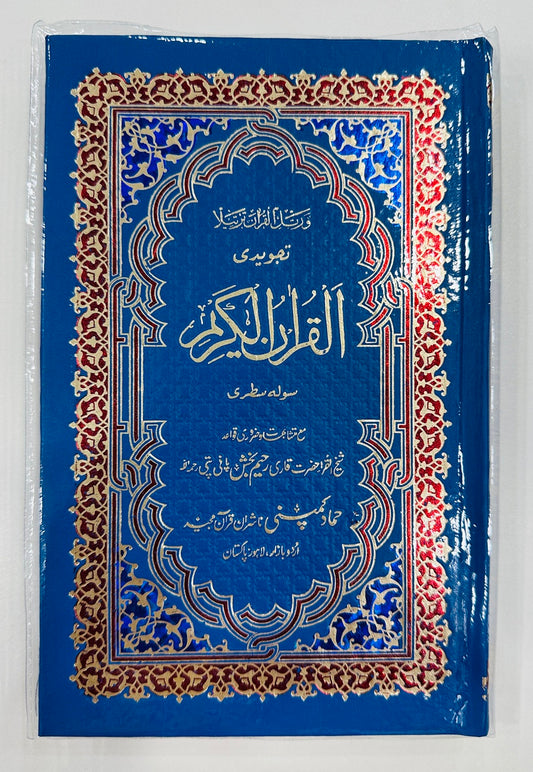 وَرَتِّلِ الْقُرْاٰنَ تَرْتِیْلًا
تجویدی
اَلْقُرْاٰنُ الْكَرِیْم
سولہ سطری
مع متشابہات و ضروری قواعد
شیخ القراء حضرت قاری رحیم بخش پانی پتی رحمہ اللہ
حماد کمپنی ناشران قرآن مجید
اردو بازار، لاہور پاکستان